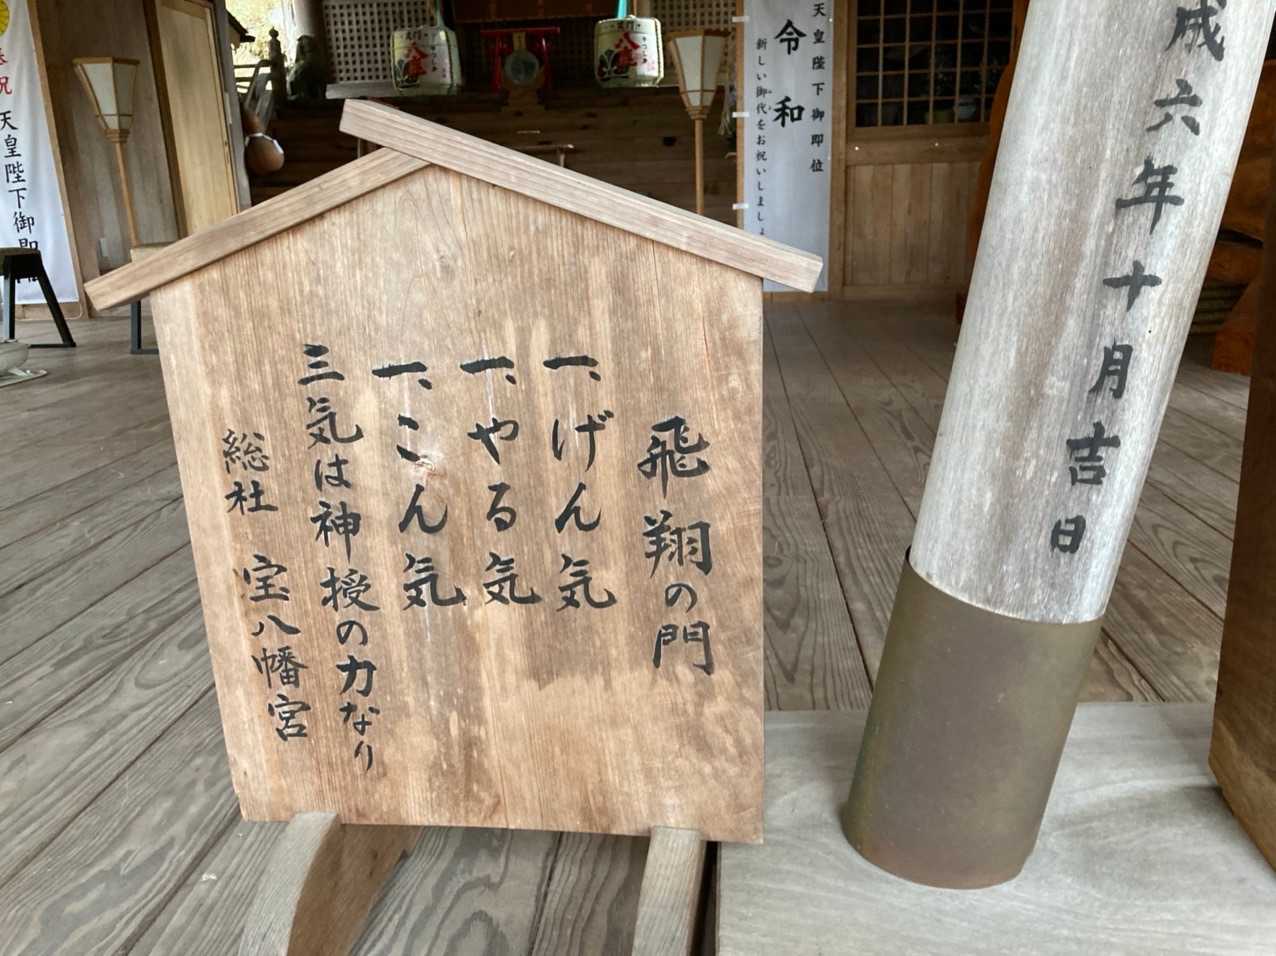 飛翔の門
一、げん気
一、やる気
一、こん気
三気は神授の力なり
総社 宝八幡宮
成六年十月吉日
天皇陛下御即位
令和
新しい御代をお祝いしましょ
祝
天皇陛下御即